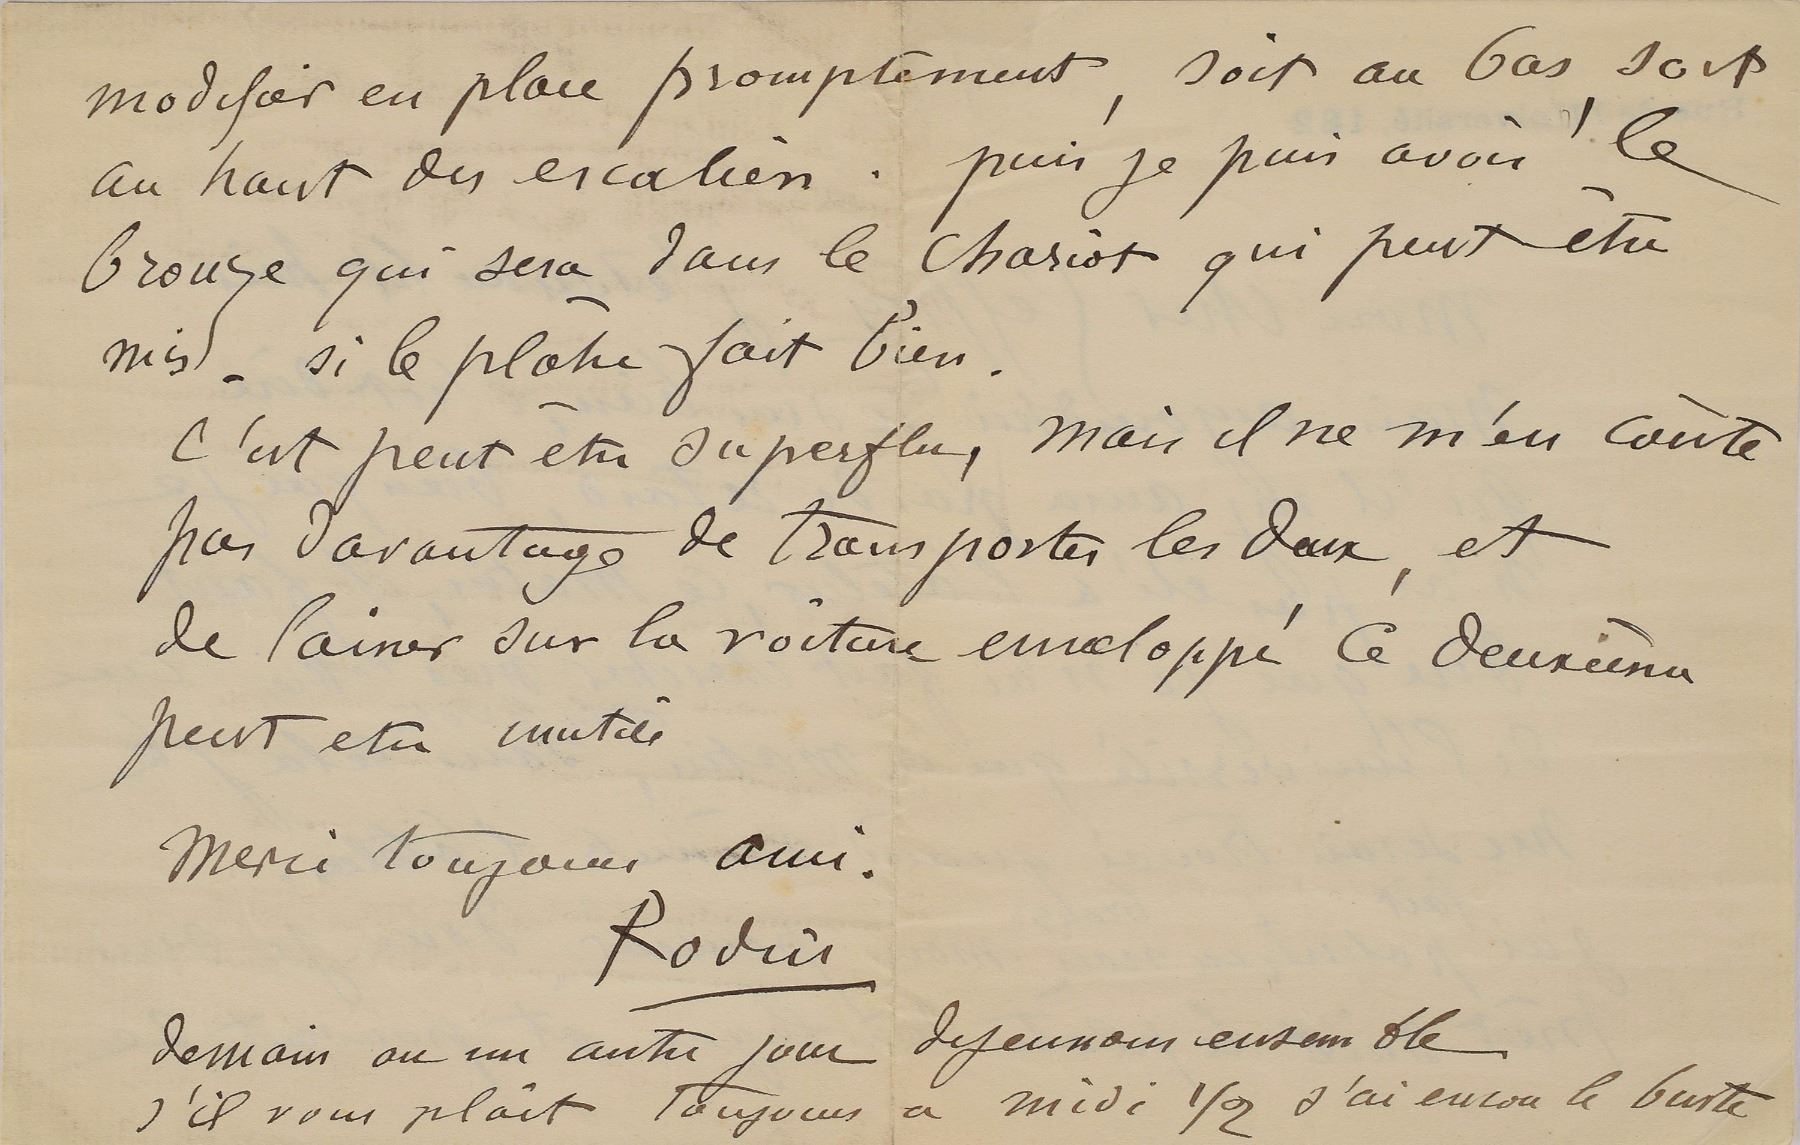 modifier en place promptement, soit au bas, soit
au haut des escaliers. puis je puis avoir le
bronze qui sera dans le chariot qui peut être
mis - si le plâtre fait bien.
C'est peut être superflu, mais il ne m'en coûte
pas davantage de transporter les deux, et
de laisser sur la voiture enveloppé ce deuxième
peut etre inutile
Merci toujours ami.
Rodin
demain ou un autre jour dejeunons ensemble
s'il vous plâit toujours a midi 1/2 j'ai encore le buste